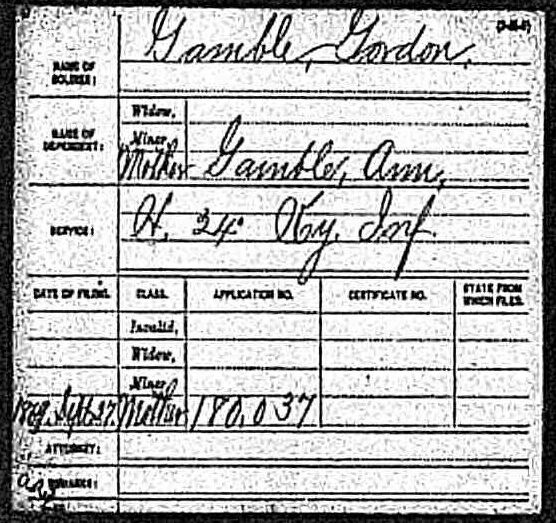 (3-15-5)
Gamble, Gordon,
NAME OF SOLDIER:
Widow,
NAME OF DEPENDENT:
Minor,
Mother Gamble, Ann,
SERVICE: H. 24 Ky. Inf.
DATE OF FILING. CLASS. APPLICATION NO. CERTIFICATE NO. STATE FROM WHICH FILED.
Invalid,
Widow,
Minor,
1869, Sept. 27. Mother 180,037
ATTORNEY:
REMARKS: